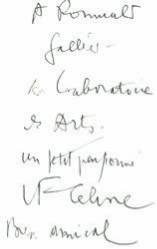 A Romuald
Gallier
du Laboratoire
es Arts.
un petit
LF Celine
Bien amical